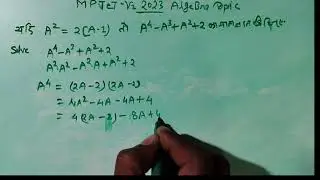 MPTET-V3 2023 Algebra Topic
यदि A² = 2(A-1) तो A⁴-A³+A²+2
Solve A⁴-A³+A²+2
A²A²-A²A+A²+2
A⁴ = (2A-2)(2A-2)
= 4A²-4A-4A+4
= 4(2A-2)-8A+4